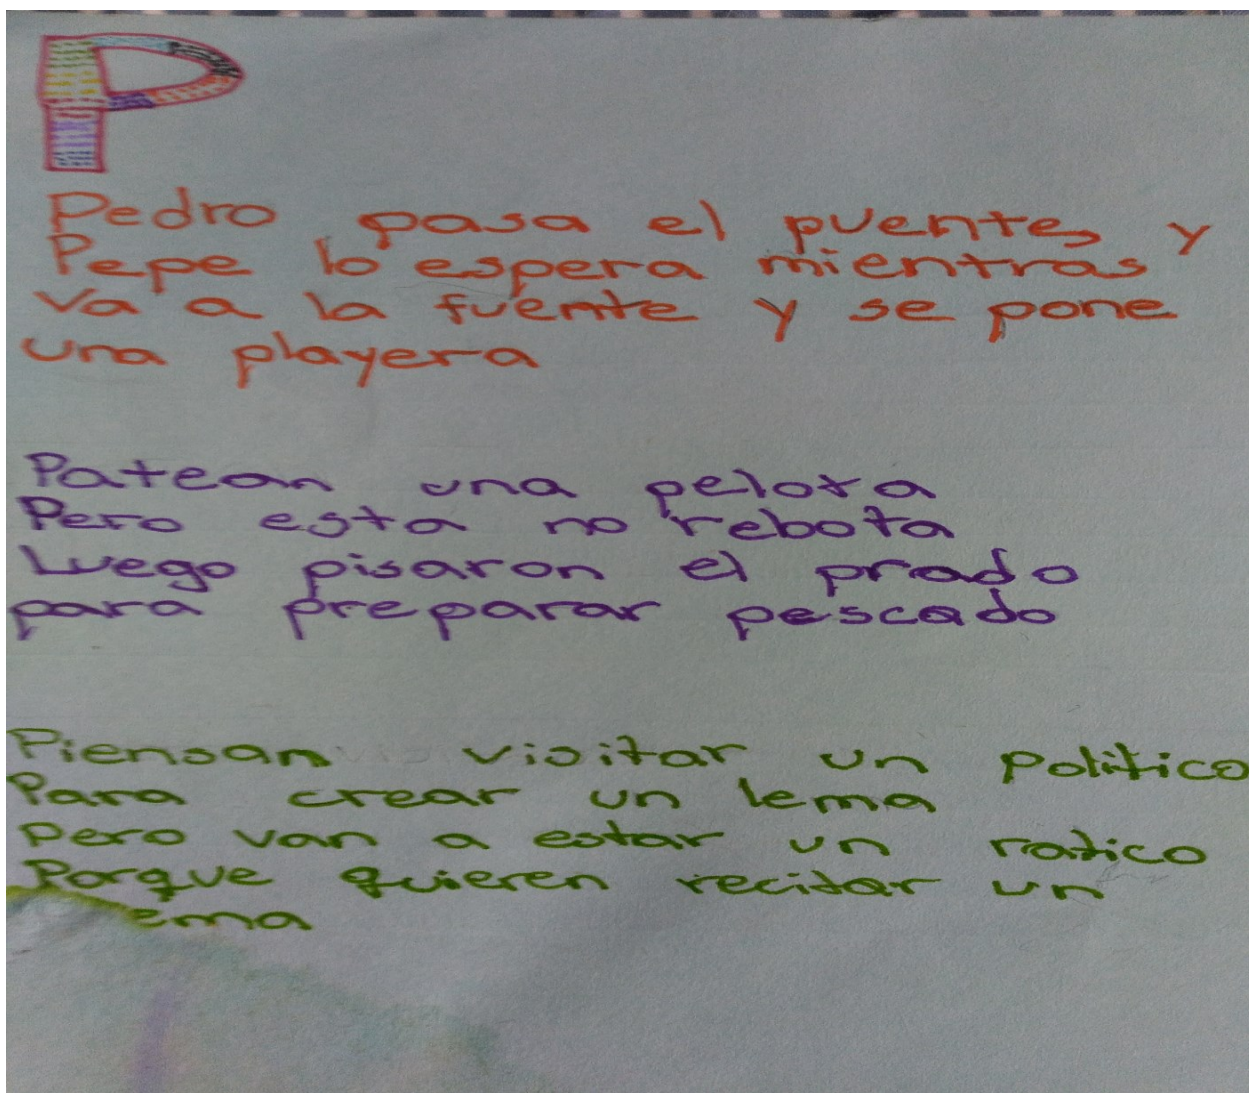 P
Pedro pasa el puente, y
Pepe lo espera mientras
Va a la fuente y se pone
una playera
Patean una pelota
Pero esta no rebota
Luego pisaron el prado
para preparar pescado
Piensan visitar un politico
Para crear un lema
pero van a estar un ratico
Porque quieren recitar un
ema